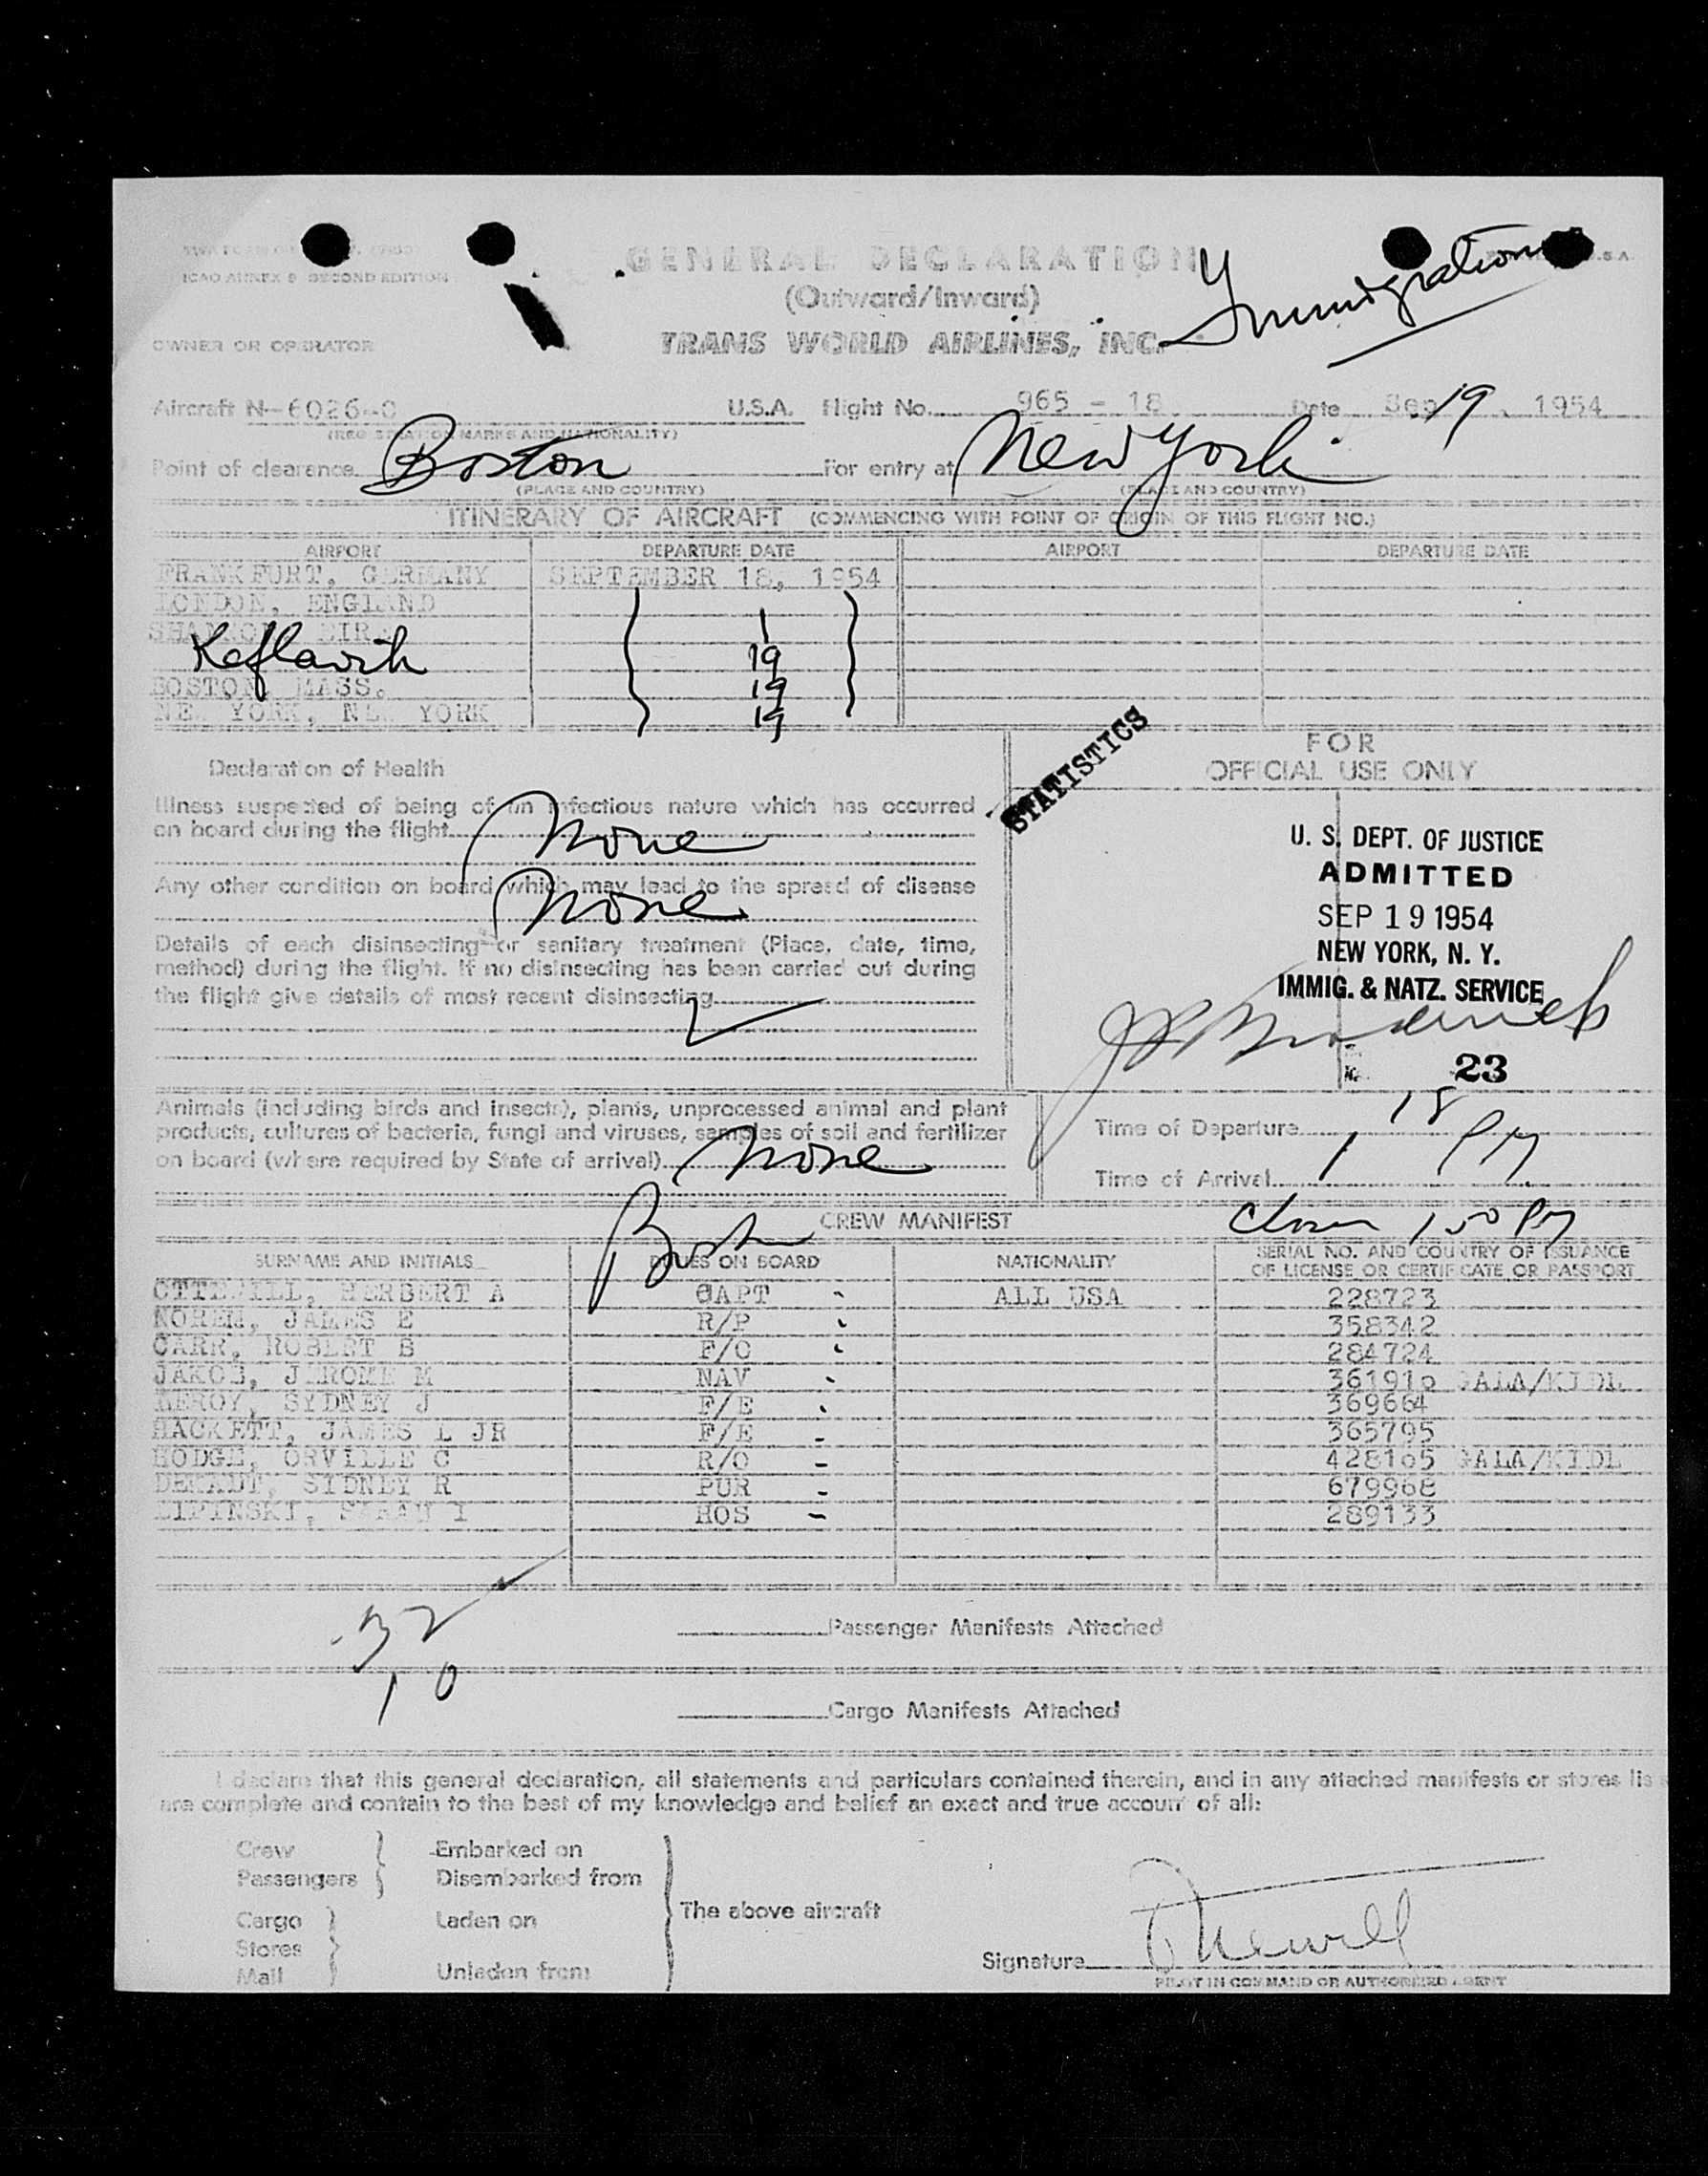 ICAO ANNEX 9 SECOND EDITION
GENERAL DECLARATION
(Outward/Inward)
Immigration
OWNER OR OPERATOR
TRANS WORLD AIRLINES, INC.
Aircraft N-6026-C U.S.A. Flight No. 965 - 18 Date Sep 19, 1954
(REGISTRATION MARKS AND NATIONALITY)
Point of clearance Boston For entry at New York
(PLACE AND COUNTRY) (PLACE AND COUNTRY)
ITINERARY OF AIRCRAFT (COMMENCING WITH POINT OF ORIGIN OF THIS FLIGHT NO.)
AIRPORT DEPARTURE DATE AIRPORT DEPARTURE DATE
FRANKFURT, GERMANY SEPTEMBER 18, 1954
LONDON, ENGLAND
SHANNON, EIRE
Keflavik 19
BOSTON, MASS. 19
NEW YORK, NEW YORK 19
STATISTICS
FOR
OFFICIAL USE ONLY
Declaration of Health
Illness suspected of being of an infectious nature which has occurred
on board during the flight None
Any other condition on board which may lead to the spread of disease
None
Details of each disinsecting or sanitary treatment (Place, date, time,
method) during the flight. If no disinsecting has been carried out during
the flight give details of most recent disinsecting
U. S. DEPT. OF JUSTICE
ADMITTED
SEP 19 1954
NEW YORK, N. Y.
IMMIG. & NATZ. SERVICE
23
Animals (including birds and insects), plants, unprocessed animal and plant
products, cultures of bacteria, fungi and viruses, samples of soil and fertilizer
on board (where required by State of arrival) None
Time of Departure 1 18 PM
Time of Arrival
CREW MANIFEST
Boston
150 PM
SURNAME AND INITIALS DUTIES ON BOARD NATIONALITY SERIAL NO. AND COUNTRY OF ISSUANCE
OF LICENSE OR CERTIFICATE OR PASSPORT
OTTEWILL, HERBERT A CAPT ALL USA 228723
NOREM, JAMES E R/P 358342
CARR, ROBERT B F/O 284724
JAKOB, JEROME M NAV 361916 GALA/KIDL
LEROY, SYDNEY J F/E 369664
HACKETT, JAMES L JR F/E 365795
HODGE, ORVILLE C R/O 428165 GALA/KIDL
SYDNEY R PUR 679968
LIPINSKI, SARAH I HOS 289133
32
10
Passenger Manifests Attached
Cargo Manifests Attached
I declare that this general declaration, all statements and particulars contained therein, and in any attached manifests or stores lis
are complete and contain to the best of my knowledge and belief an exact and true account of all:
Crew Embarked on
Passengers Disembarked from
The above aircraft
Cargo Laden on
Stores
Mail Unladen from
Signature
PILOT IN COMMAND OR AUTHORIZED AGENT